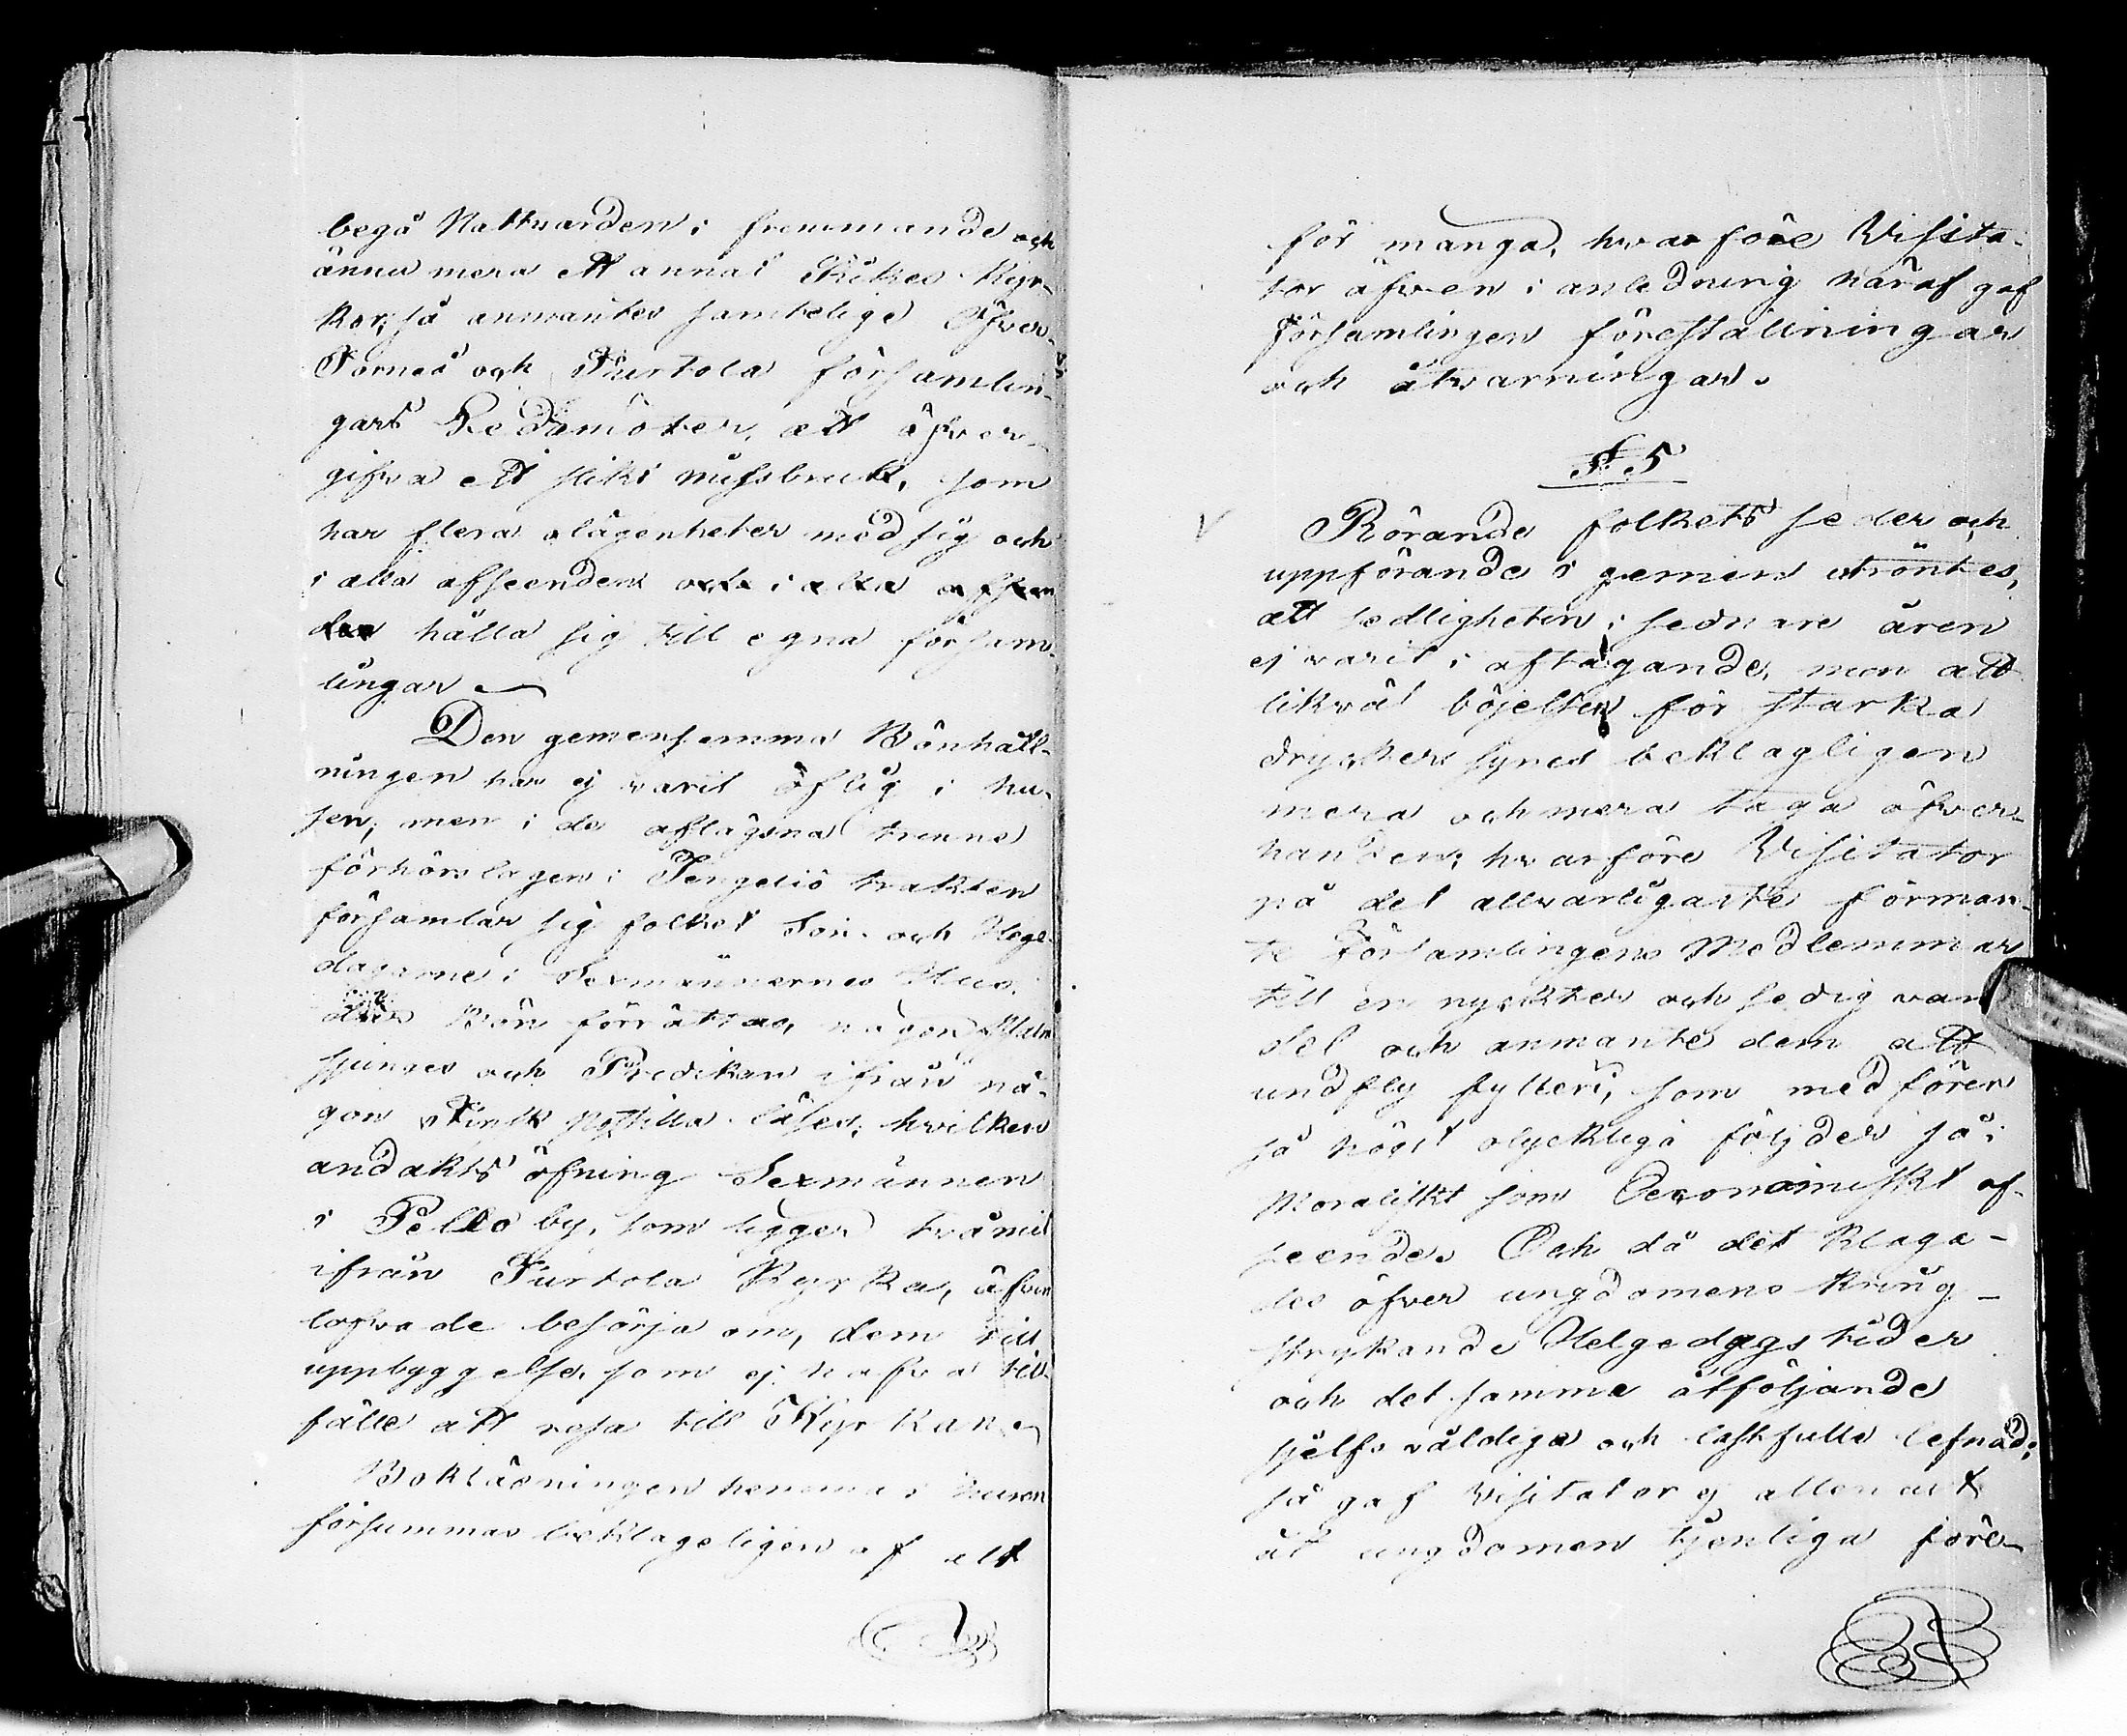 begå Nattvarden i fremmande och
ännu mera ett annat Rikes Kyr-
kor; så anmantes samtelige Öfver-
Torneå och Turtola församlin-
gars Ledamöter, att öfver-
gifva ett slikt missbruk, som
har flera olägenheter med sig och
i alla afseenden och i alla afseen
den hålla sig till egna försam-
lingar
Den gemensamma Bönhåll-
ningen har ej varit öflig i hu-
sen; men i de aflägsna trenne
förhörslagen i Tengeliö trakten
församlar sig folket Sön- och Helge-
dagarne i Sexmännernes Hus,
der Bön förrättas, någon Psalm
sjunges och Predikan ifrån nå-
gon Finsk Postilla läses; hvilken
andakts öfning Sexmännen
i Pello by, som ligger två mil
ifrån Turtola Kyrka, äfven
lofvade besörja om, dem till
uppbyggelse, som ej hafva till-
fälle att resa till Kyrkan.
Bokläsningen hemma i husen
försummas beklageligen af alt
för många, hvarföre Visita-
tor äfven i anledning häraf gaf
Församlingen föreställningar
och åtvarningar.
§. 5
Rörande folkets seder och
uppförande i gemen utröntes,
att sedligheten i sednare åren
ej varit i aftagande, men att
likväl böjelsen för starka
drycker synes beklagligen
mera och mera taga öfver-
handen; hvarföre Visitator
på det allvarligaste förman-
te Församlingens Medlemmar
till en nyckter och sedig van
del och anmante dem att
undfly fylleri, som medförer
så högst olyckliga följder så i
Moraliskt som Oeconomiskt af-
seende. Och då det klaga-
des öfver ungdomens kring-
strykande Helgedags tider
och det samma åtföljande
sjelfsväldiga och lastfulla lefnad;
så gaf Visitator ej allenast
åt ungdomen tjenliga före-